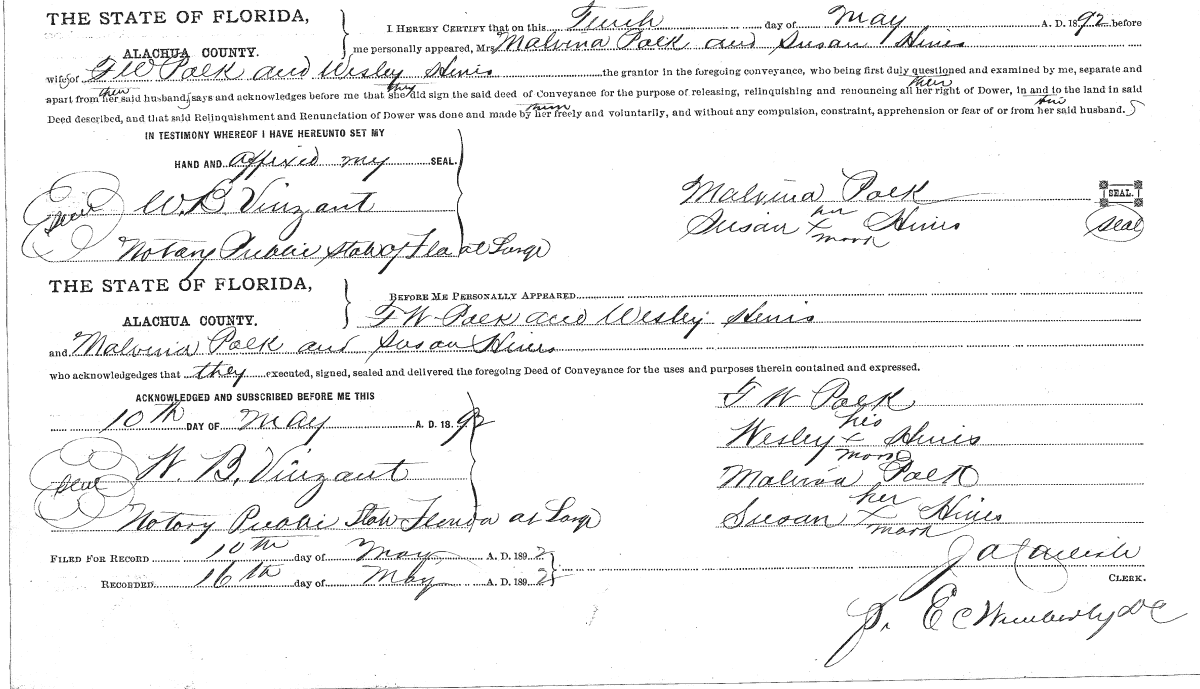 THE STATE OF FLORIDA,
ALACHUA COUNTY.
I HEREBY CERTIFY that on this Tenth day of May A. D. 1892 before
me personally appeared, Mrs Malvina Polk and Susan Hines
wifes of F W Polk and Wesley Hines the grantor in the foregoing conveyance, who being first duly questioned and examined by me, separate and
apart from her their said husbands says and acknowledges before me that she they did sign the said deed of Conveyance for the purpose of releasing, relinquishing and renouncing all her their right of Dower, in and to the land in said
Deed described, and that said Relinquishment and Renunciation of Dower was done and made by her them freely and voluntarily, and without any compulsion, constraint, apprehension or fear of or from her their said husband. s
IN TESTIMONY WHEREOF I HAVE HEREUNTO SET MY
HAND AND affixed my SEAL.
Seal W. B Vinzant
Notary Public State of Fla at Large
Malvina Polk SEAL.
Susan her x mark Hines Seal
THE STATE OF FLORIDA,
ALACHUA COUNTY.
BEFORE ME PERSONALLY APPEARED
F W Polk and Wesley Hines
and Malvina Polk and Susan Hines
who acknowledgedges that they executed, signed, sealed and delivered the foregoing Deed of Conveyance for the uses and purposes therein contained and expressed.
ACKNOWLEDGED AND SUBSCRIBED BEFORE ME THIS
10th DAY OF May A. D. 1892
Seal W. B. Vinzant
Notary Public State Florida at Large
F W Polk
Wesley his x mark Hines
Malvina Polk
Susan her x mark Hines
FILED FOR RECORD 10th day of May A. D. 1892
RECORDED 16th day of May A. D. 1892
J A Carlisle
CLERK.
E C Wimberly DC